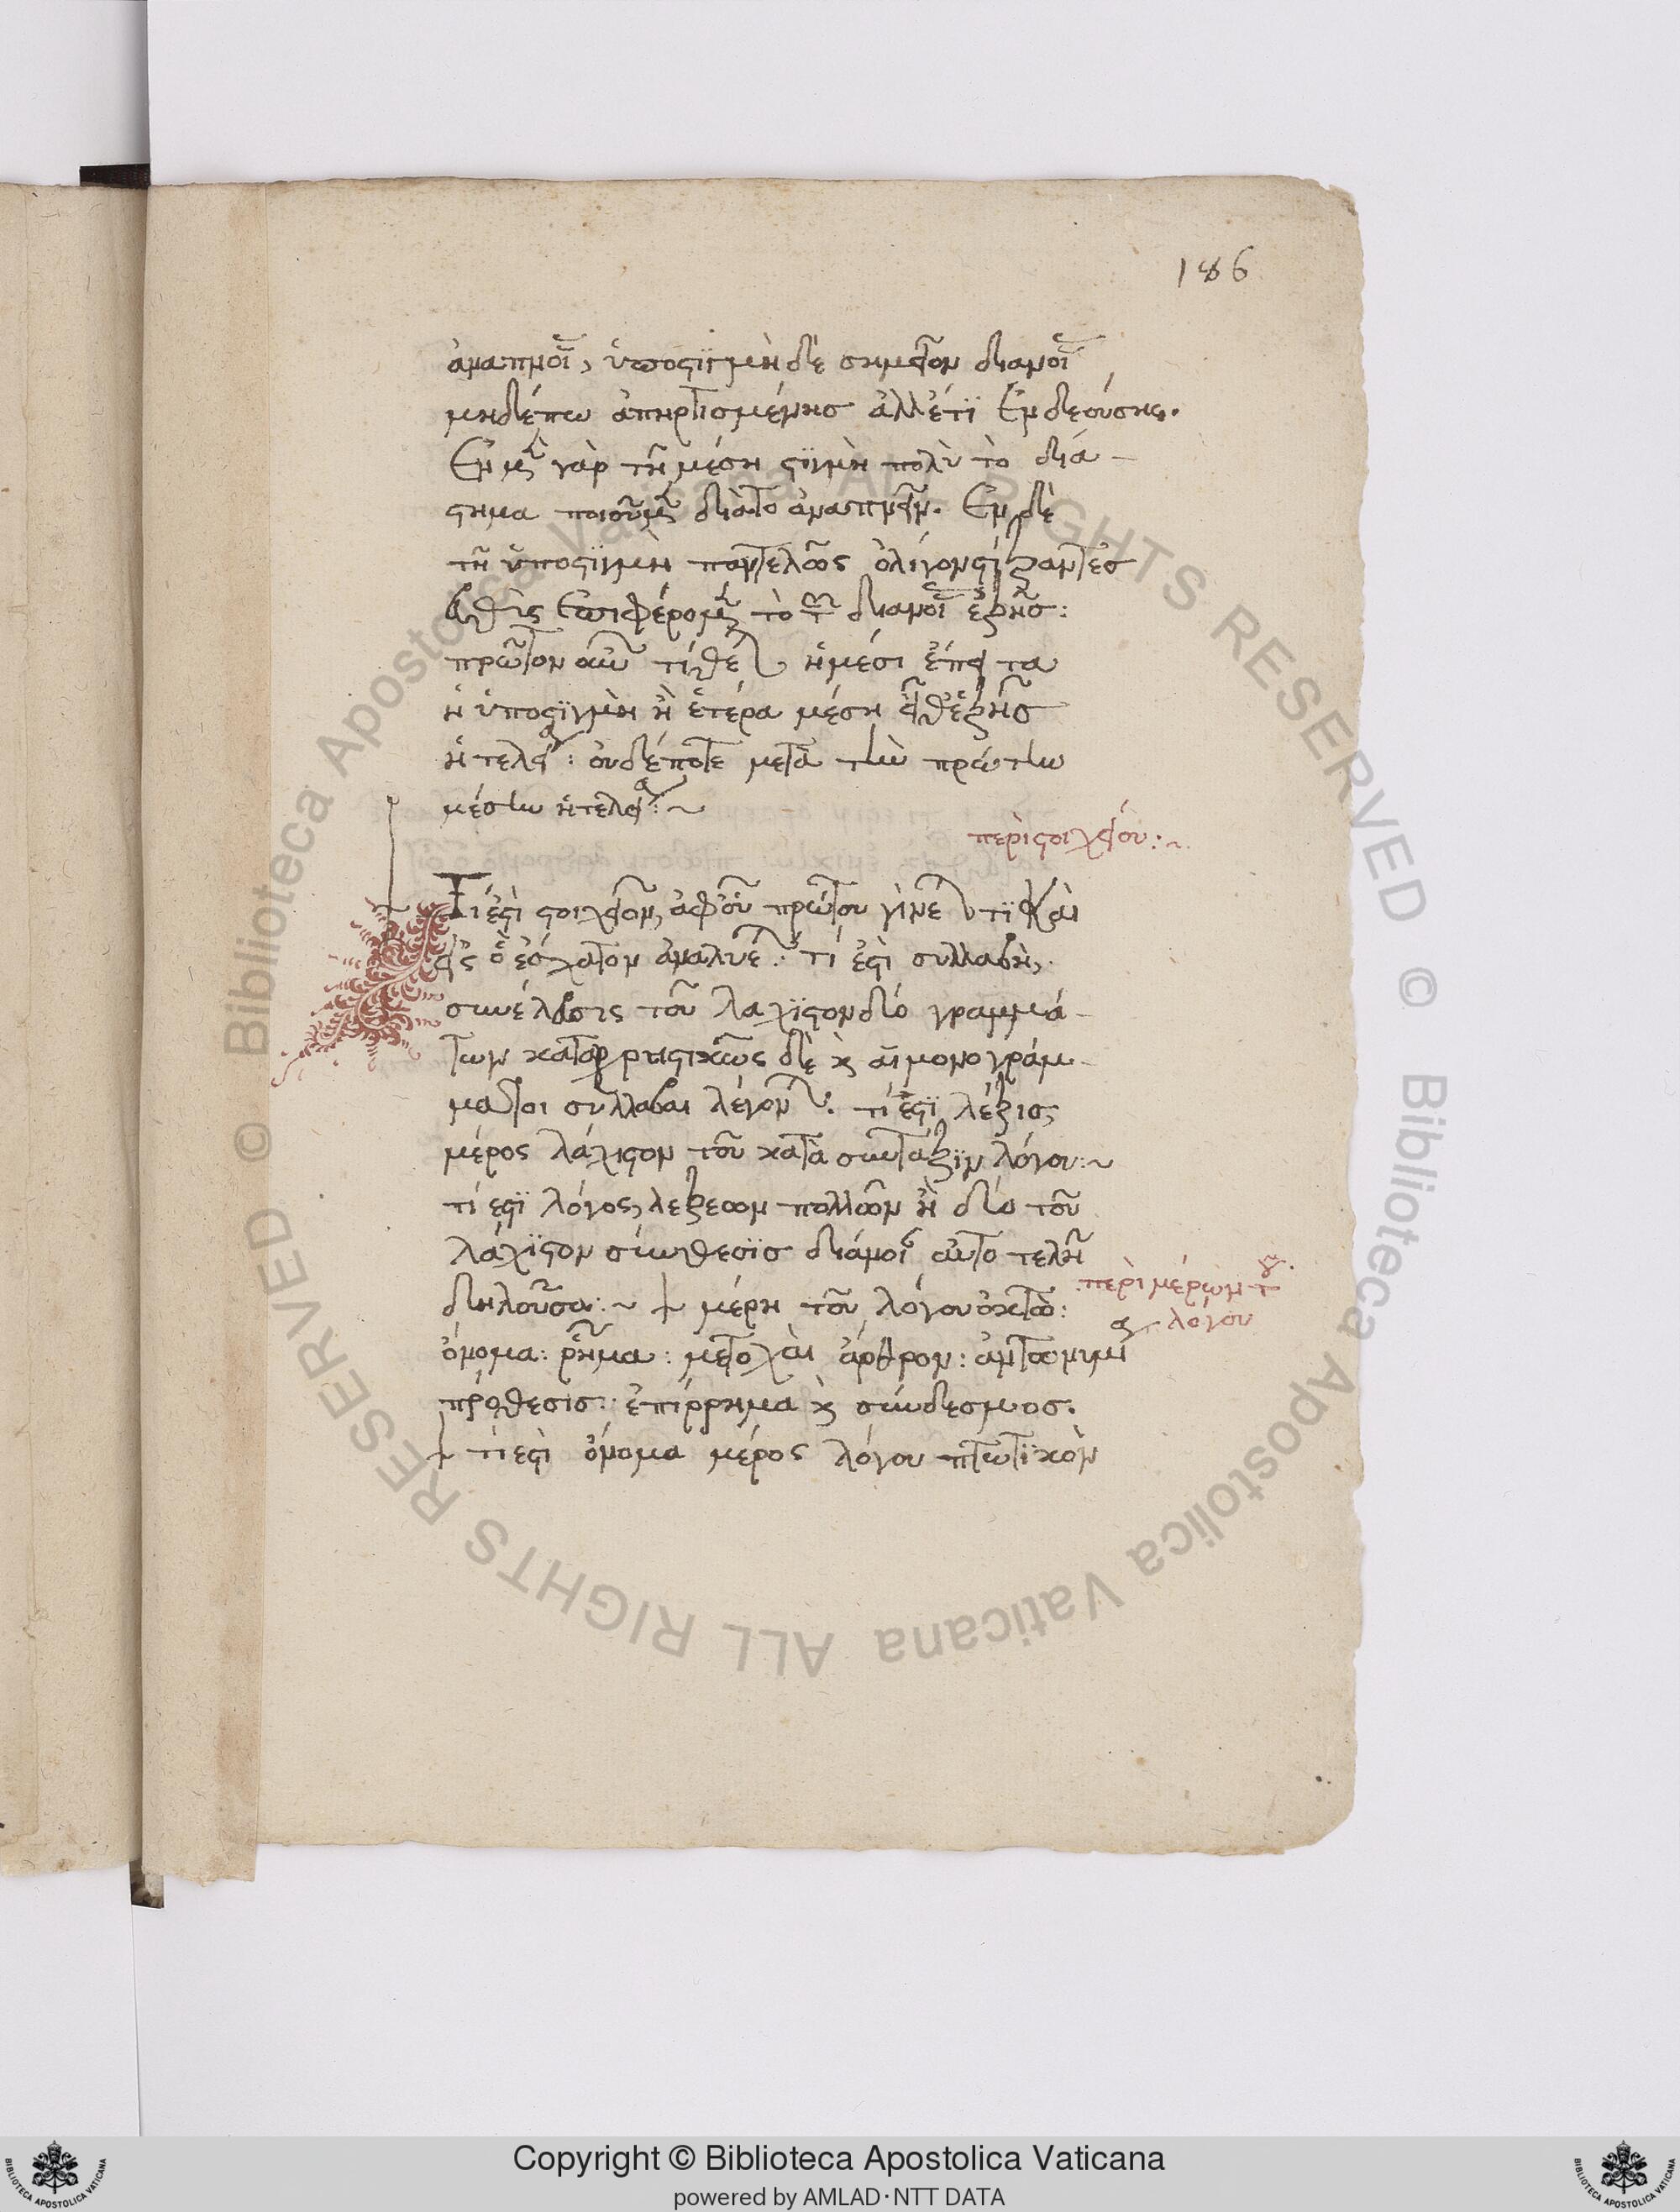 186
ἀναπνοῆς, ὑποστιγμὴ δὲ σημεῖον διανοίας
μηδέπω ἀπηρτισμένης ἀλλ' ἔτι ἐνδεούσης.
Ἐν μὲν γὰρ τῆ μέση στιγμὴ πολὺ τὸ διά-
στημα ποιοῦμεν διὰ τὸ ἀναπνεῖν. Ἐν δὲ
τῆ ὑποστιγμὴ παντελῶς ὀλίγον στίξαντες
εὐθὺς ἐπιφέρομεν τὸ τῆς διανοίας ἑξῆς:
πρῶτον οὖν τίθεται ἡ μέσι ἔπειτα
ἡ ὑποστιγμὴ ἢ ἑτέρα μέση εἶθ' ἑξῆς
ἡ τελεία: οὐδέποτε μετὰ τὴν πρώτην
μέσην ἡ τελεία:~
περὶ στοιχείου:~
Τί ἐστὶ στοιχεῖον, ἀφ' οὗ πρώτου γίνεται τὶ καὶ
εἰς ὃ ἔσχατον ἀναλύεται: τί ἐστὶ συλλαβὴ,
συνέλευσις τοὐλάχιστον δύο γραμμά-
των καταχρηστικῶς δὲ καὶ αἱ μονογράμ-
ματοι συλλαβαι λέγονται. τί ἐστὶ λέξις
μέρος λάχιστον τοῦ κατὰ σύνταξιν λόγου:~
τί ἐστὶ λόγος, λέξεων πολλῶν ἢ δύο τοὐ
λάχιστον σύνθεσις διάνοιαν αὐτοτελῆ
δηλοῦσα:~ + μέρη τοῦ λόγου ὀκτὼ:
περὶ μέρων τοῦ
λόγου
ὄνομα: ῥῆμα: μετοχὴ ἄρθρον: ἀντωνυμία
πρόθεσις: ἐπίρρημα καὶ σύνδεσμος.
+ τί ἐστὶ ὄνομα μέρος λόγου πτωτικὸν
Copyright © Biblioteca Apostolica Vaticana
powered by AMLAD·NTT DATA
© Biblioteca Apostolica Vaticana ALL RIGHTS RESERVED © Biblioteca Apostolica Vaticana ALL RIGHTS RESERVED